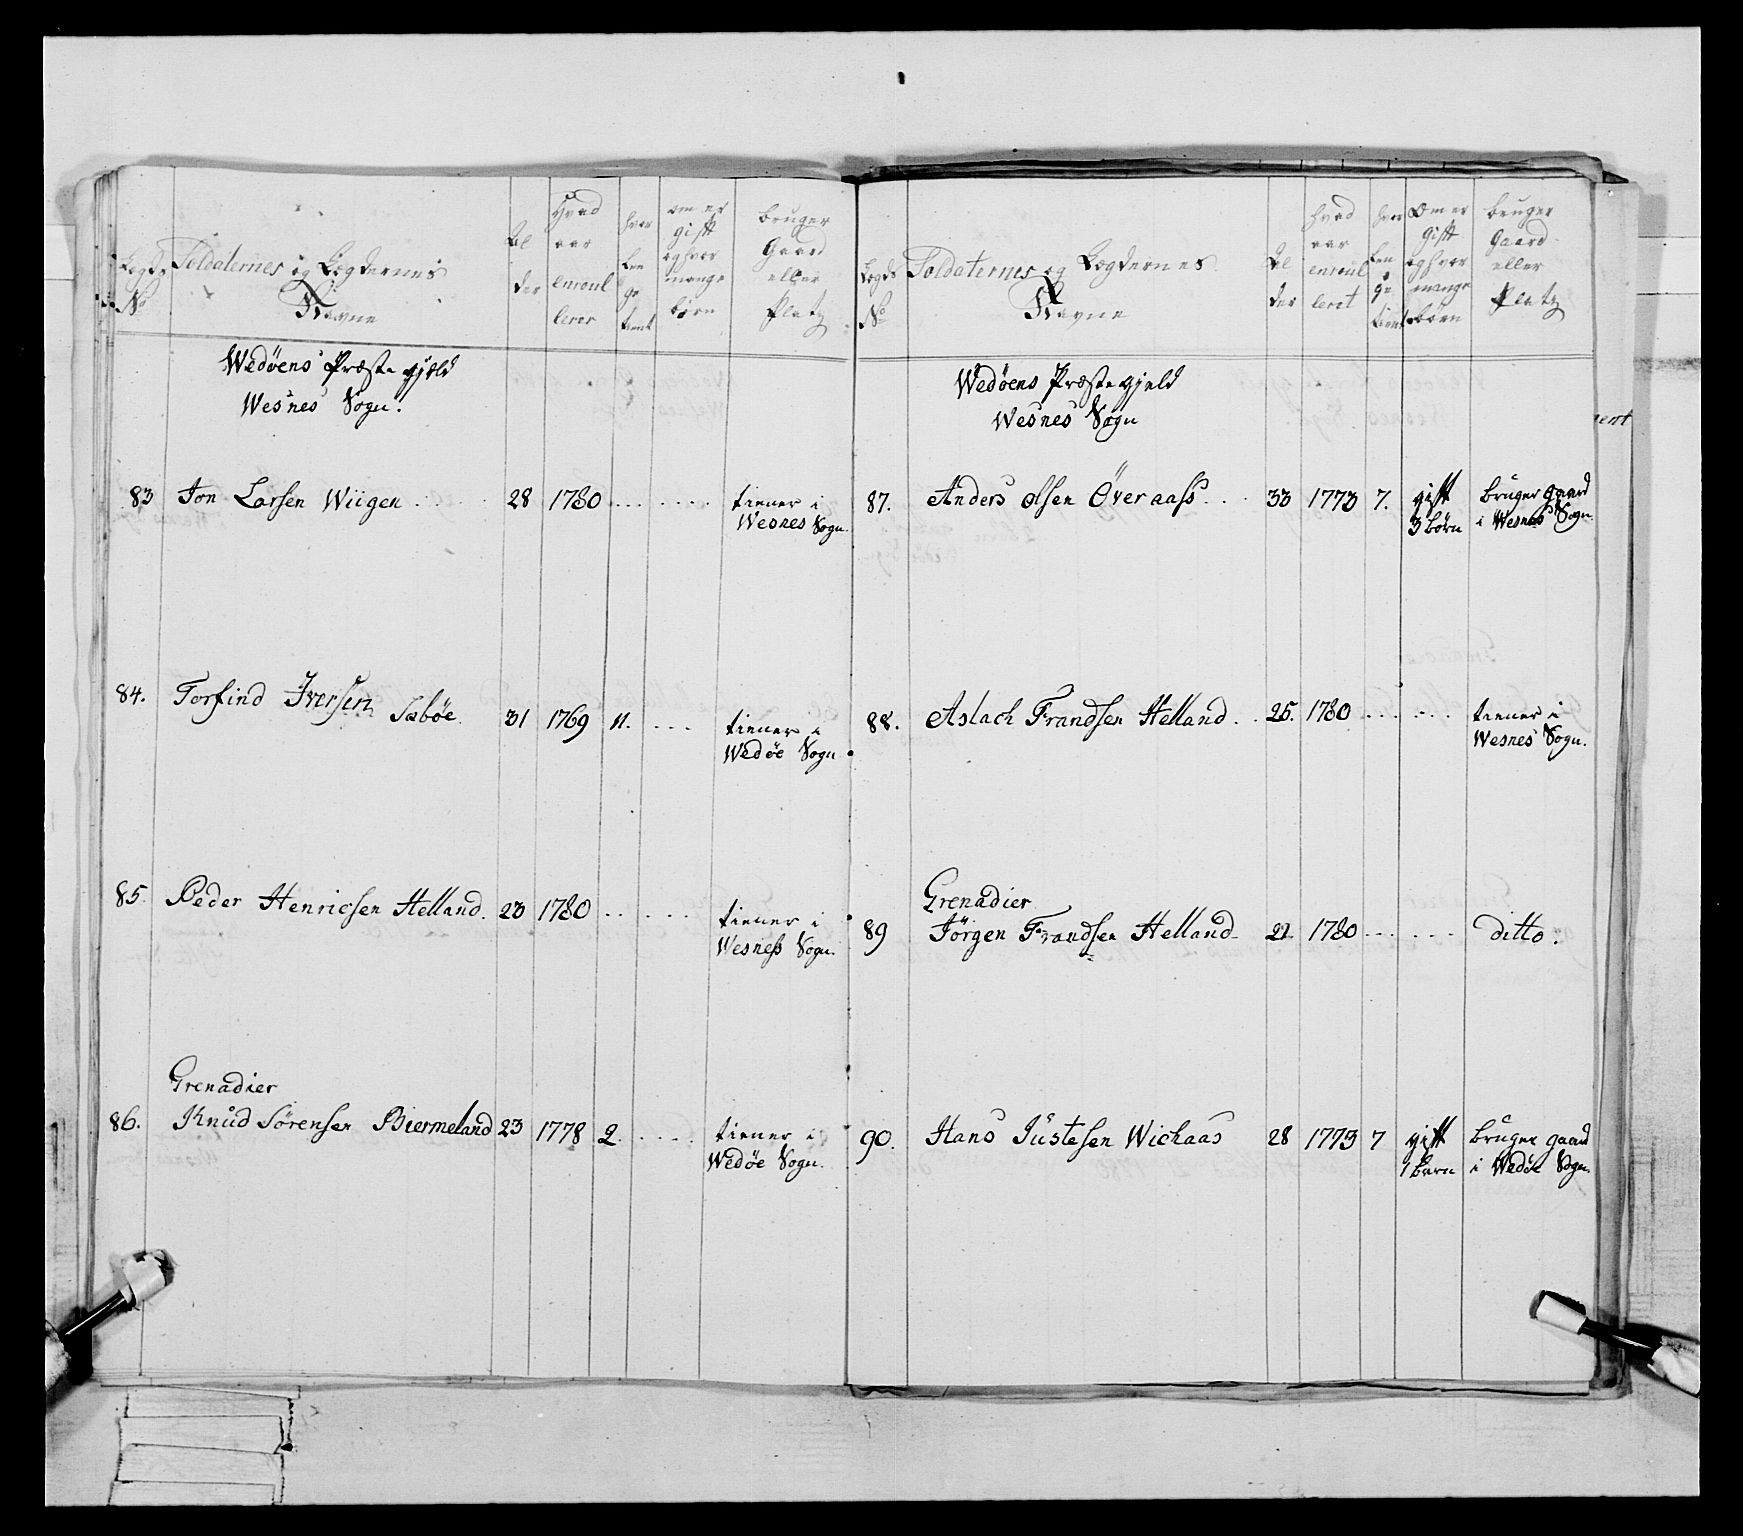 Lægds
No
Soldaternes og Lægdernes
Navne
Al
der
Hvad
aar
enroul
leret
hvor
Len
ge
tient
om er
gift
og hvor
mange
børn
bruger
Gaard
eller
Platz
Wedøens Præste gjæld
Wesnes Sogn.
83 Jon Larsen Wiigen . . . . 28 1780 . . . . . . . tiener i
Wesnes Sogn.
84. Torfind Iversen Sæbøe. 31 1769 11. . . . tiener i
Wedøe Sogn
85. Peder Henricsen Helland. 23 1780 . . . . . tiener i
Wesness Sogn.
Grenadier
86. Knud Sørensen Biermeland 23 1778 2. . . . . tiener i
Wedøe Sogn.
Lægds
No
Soldaternes og Lægdernes
Navne
Al
der
hvad
aar
enroul
leret
hvor
Len
ge
tient
Om er
gift
og hvor
mange
børn
bruger
Gaard
eller
Platz
Wedøens Præste gjeld
Wesnes Sogn
87. Anders Olsen Øveraass . . . 33 1773 7. gift bruger gaard
3 børn i Wesnes Sogn
88. Aslach Frandsen Helland . . 25. 1780 . . . . . . tiener i
Wesnes Sogn.
Grenadier
89 Jörgen Frandsen Helland 1780 . . . . . . ditto.
90. Hans Justesen Wichaas 28 1773 7 gift bruger gaard
1 barn i Wedøe Sogn.